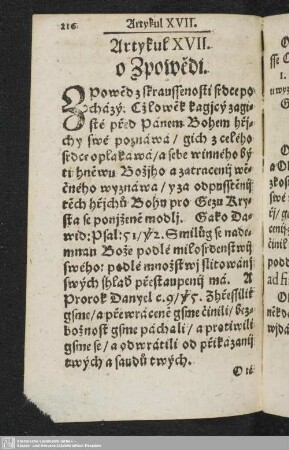 216 Artykul XVII.
Artykul XVII.
o Zpowědi.
ZPowěd z skraussenosti srdce po
cházý. Cžlowěk kagjcý zagi-
sté před Pánem Bohem hřj-
chy swé poznáwá/ gich z celého
srdce oplakáwá/ a sebe winného bý-
ti hněwu Božjho a zatracenij wě-
čného wyznáwá/ y za odpusstěnij
těch hřjchů Bohu pro Gezu Kry-
sta se ponjženě modlj. Gako Da-
wid: Psal: 51/ v. 2. Smilůg se nade-
mnau Bože podlé milosrdenstwij
swého: podlé množstwj slitowánj
swých shlaď přestaupenij má. A
Prorok Danyel c. 9/ v. 5. Zhřessilit
gsme/ a přewráceně gsme činili/ bez-
božnost gsme páchali/ a protiwili
gsme se/ a odwrátili od přikázanij
twých a saudů twých.
O té